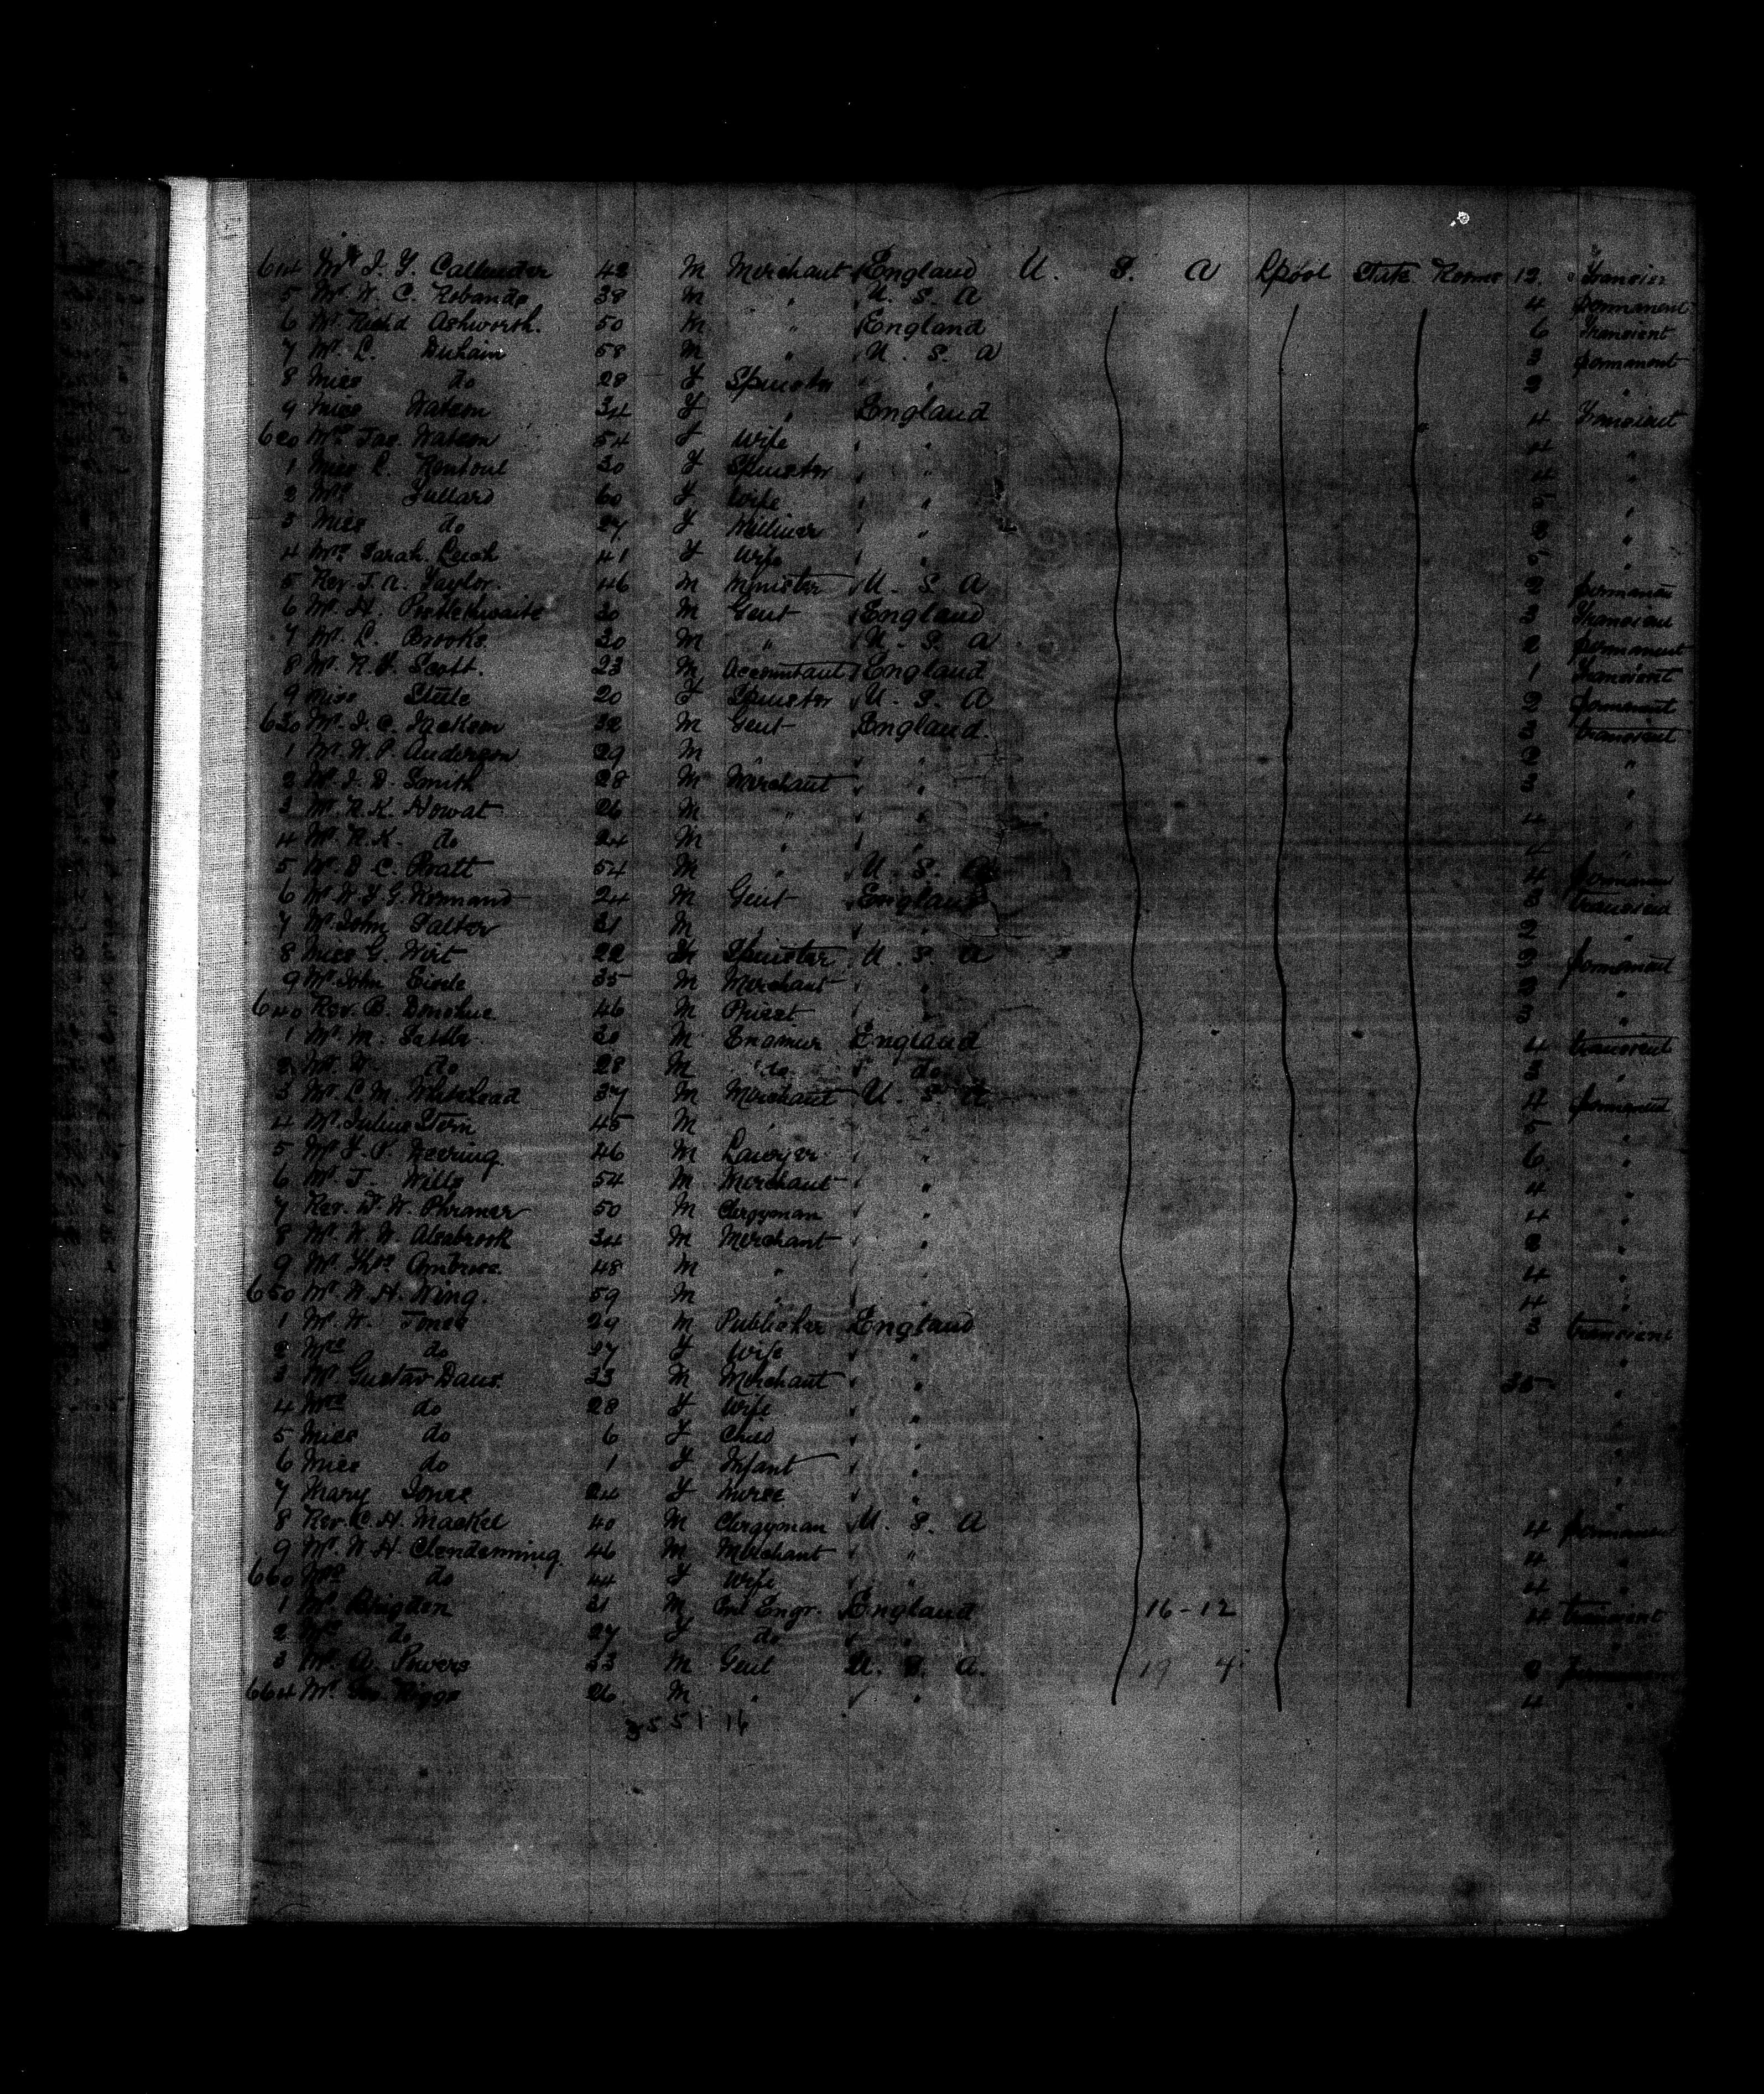 614 Mr J. Y. Callender 42 M Merchant England U. S. A Lpool State Rooms 12 Transien
5 Mr. W. C. 38 M " U. S. A 4 permanent
6 Mr. Richd Ashworth. 50 M " England 6 Transient
7 Mr. L. Duhain 58 M " U. S. A 3 permanent
8 Miss do 28 F Spinster " 2 "
9 Miss Watson 34 F " England 4 Transient
620 Mrs Jas. Watson 54 F Wife " 4 "
1 Miss L. Rentoul 30 F Spinster " 4 "
2 Mrs 60 F Wife " "
3 Miss do 27 F Milliner " 3 "
4 Mrs. Sarah Leech 41 F Wife " "
5 Rev. J. A. Taylor. 46 M Minister U. S. A 2 permanen
6 Mr. H. Postlethwaite 30 M Gent England 3 Transien
7 Mr. L. Brooks. 30 M " U. S. A 2 permanent
8 Mr. R. F. Scott. 23 M Accountant England 1 Transient
9 Miss Stute 20 F Spinster U. S. A 2 permanent
630 Mr. J. C. Jackson 32 M Gent England. 3 transient
1 Mr. W. P. Anderson 29 M " " 2 "
2 Mr. J. D. Smith 28 M Merchant " 3 "
3 Mr. R. K. Howat 26 M " " 4 "
4 Mr. R. K. do 24 M " " 4 "
5 Mr. D. C. Pratt 54 M " U. S. A 4
6 Mr W. F. G. 24 M Gent England 3 transien
7 Mr. John Salter 31 M " " 2 "
8 Miss G. Wirt 22 Spinster U. S. A 2 permanent
9 Mr. John Eisele 35 M Merchant " 3 "
640 Rev. B. Donohue 46 M Priest " 3 "
1 Mr. M. Sattler 30 M England 4 transient
2 Mr. W. do 28 M do do 3 "
3 Mr. L. M. Whitehead 37 M Merchant U. S. A 4 permanent
4 Mr. Julius Stern 45 M " " "
5 Mr. F. P. Deering. 46 M Lawyer " 6 "
6 Mr. J. Wills 54 M Merchant " 4 "
7 Rev. D. W. Phraner 50 M Clergyman " 4 "
8 Mr. W. W. Alsabrook 34 M Merchant " 2 "
9 Mr. Thos Ambrose. 48 M " " 4 "
650 Mr. W. H. Wing. 59 M " " 4 "
1 Mr. W. Jones 29 M Publisher England 3 transient
2 Mrs do 27 F Wife " "
3 Mr. Gustav Daus. 33 M Merchant " 35 "
4 Mrs do 28 F Wife "
5 Miss do 6 F Child " "
6 Miss do 1 F Infant " "
7 Mary Jones 24 F Nurse " "
8 Rev. C. H. Mackel 40 M Clergyman U. S. A 4 permanent
9 Mr. W. H. Clendenning. 46 M Merchant " 4 "
660 Mrs do 44 F Wife " 4 "
1 Mr. Brigden 31 M Civl Engr. England 16-12 4 transient
2 Mrs do 27 F do " "
3 Mr. A. Powers 33 M Gent U. S. A. 19 4 2
664 Mr. Riggs 26 M " " 4 "
3551 16